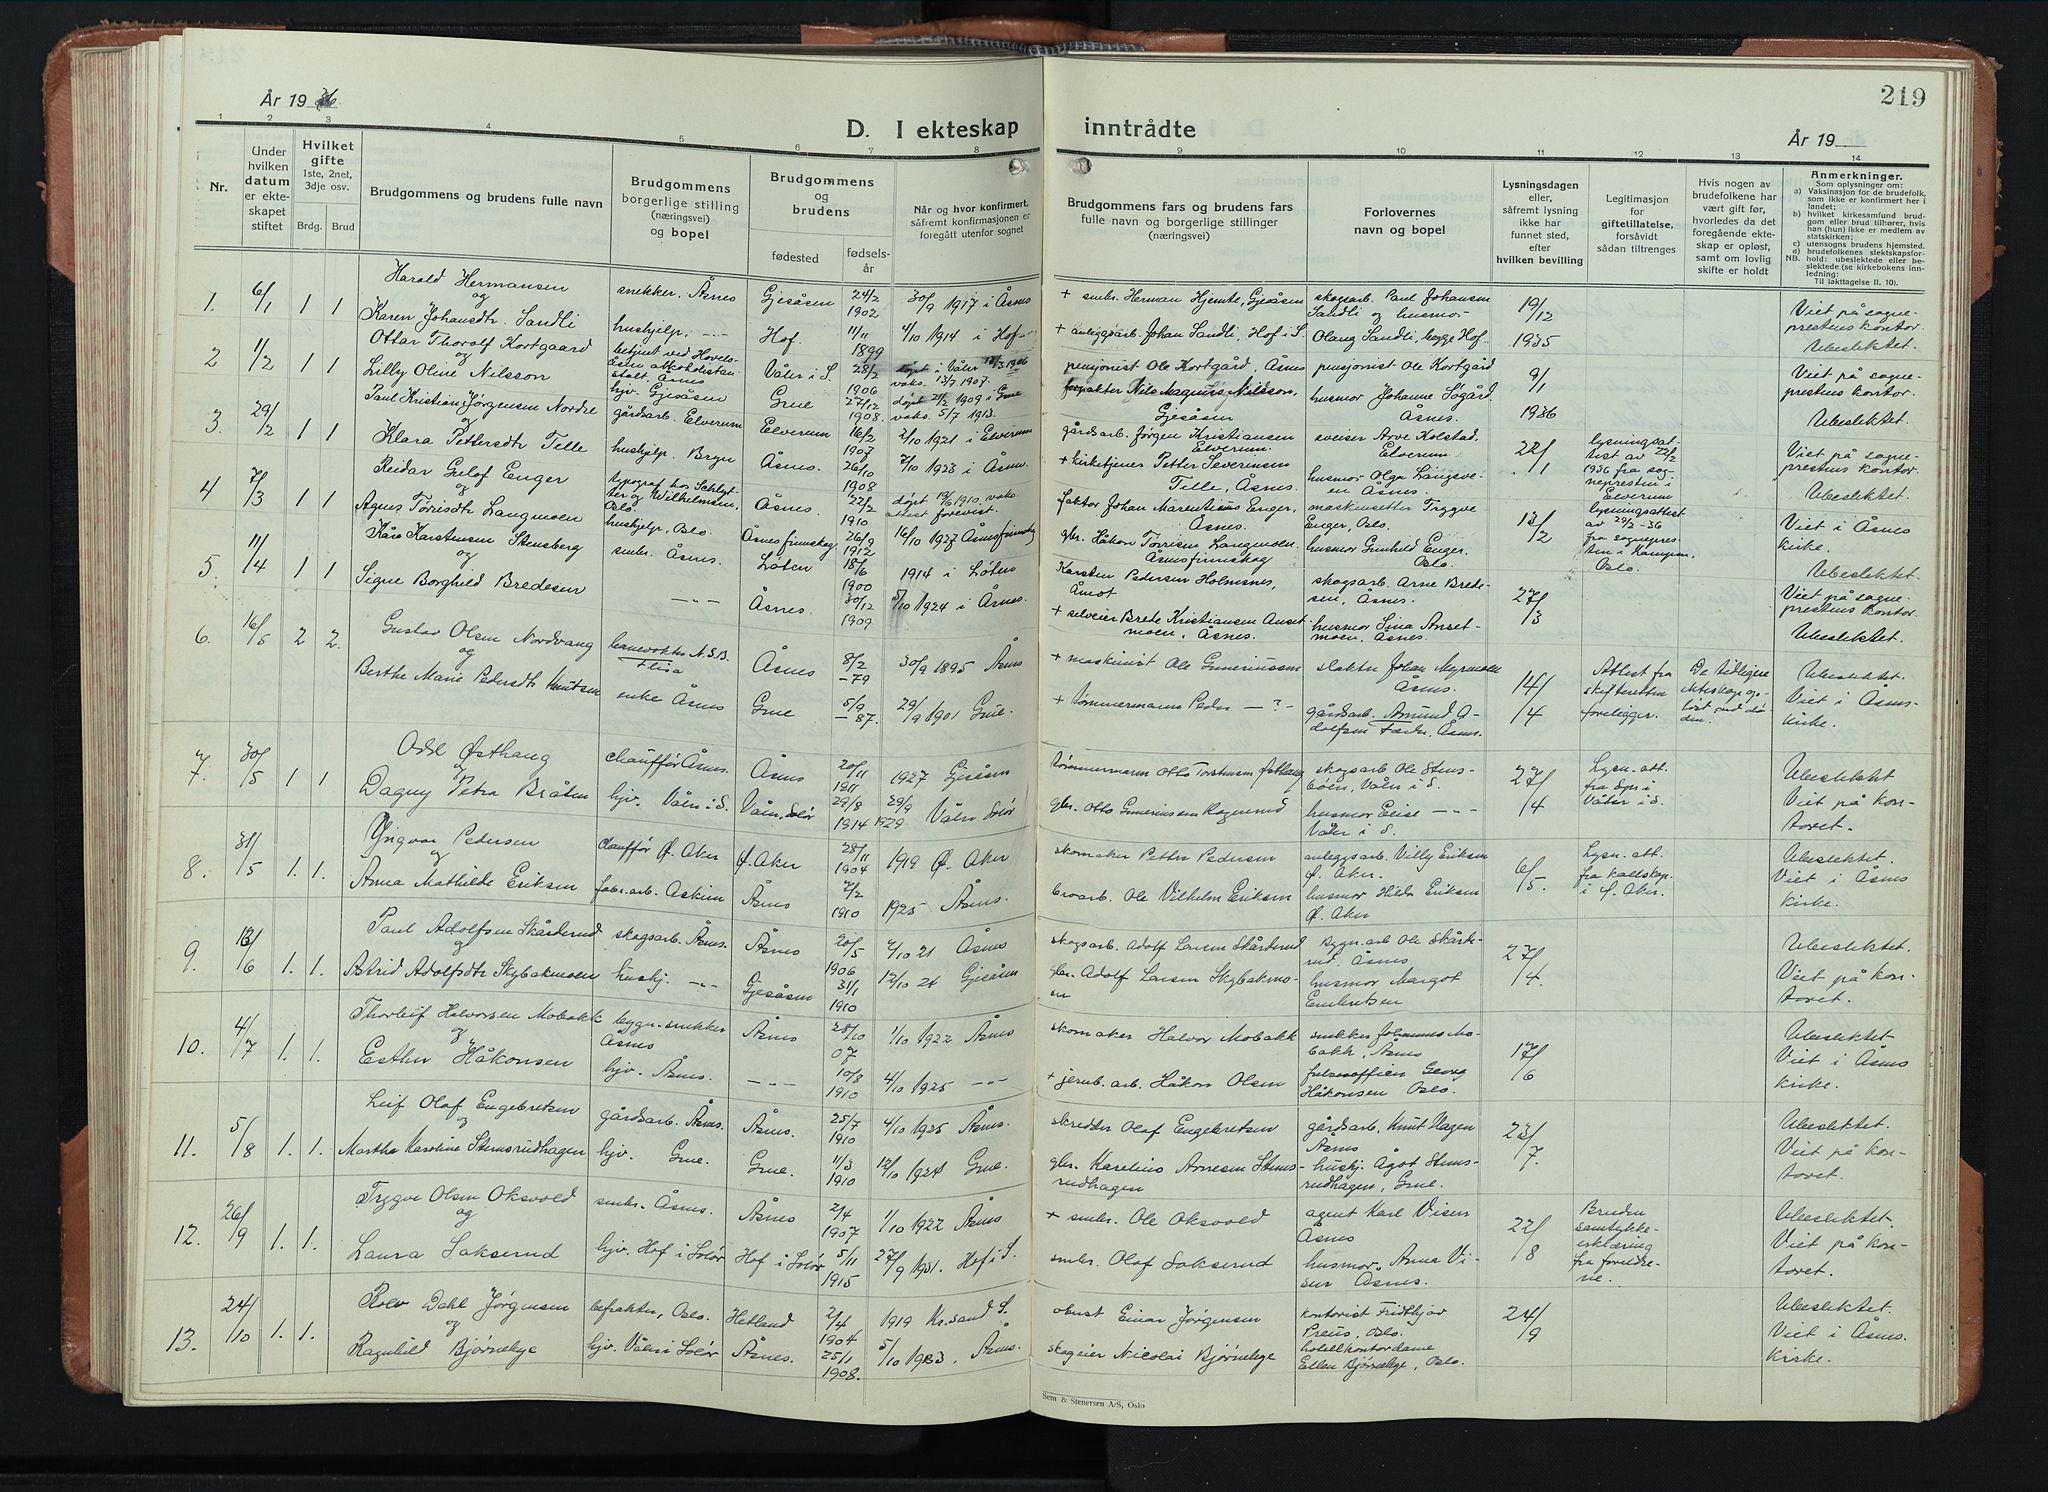 219
År 1936.
D. I ekteskap inntrådte
År 19
1 2 3 4 5 6 7 8 9 10 11 12 13 14
Nr.
Under hvilken datum er ekteskapet stiftet
Hvilket gifte 1ste, 2net, 3dje osv.
Brdg. Brud
Brudgommens og brudens fulle navn
Brudgommens borgerlige stilling (næringsvei) og bopel
Brudgommens og brudens
fødested
fødselsår
Når og hvor konfirmert, såfremt konfirmasjonen er foregått utenfor sognet
Brudgommens fars og brudens fars fulle navn og borgerlige stillinger (næringsvei)
Forlovernes navn og bopel
Lysningsdagen eller, såfremt lysning ikke har funnet sted, efter hvilken bevilling
Legitimasjon for giftetillatelse. forsåvidt sådan tiltrenges
Hvis nogen av brudefolkene har vært gift før, hvorledes da det foregående ekteskap er opløst, samt om lovlig skifte er holdt
Anmerkninger.
Som oplysninger om:
a) Vaksinasjon for de brudefolk, som ikke er konfirmert her i landet;
b) hvilket kirkesamfund brudgom eller brud tilhører, hvis han (hun) ikke er medlem av statskirken;
c) utensogns brudens hjemsted.
d) brudefolkenes slektskapsforhold: ubeslektede eller beslektede (se kirkebokens innledning: Til iakttagelse II. 10).
NB.
1. 6/1 1 1 Harald Hermansen snekker. Åsnes Gjesåsen 24/2 1902 30/9 1917 i Åsnes + smbr. Herman Hjemte, Gjesåsen skogsarb. Paul Johansen Sandli og husmor 19/12 Viet på sogneprestens kontor.
og
Karen Johansdtr. Sandli hushjelp. -"- Hof. 11/11 1899 4/10 1914 i Hof + anleggsarb. Johan Sandli, Hof i S. Olaug Sandli, begge Hof 1935 Ubeslektet.
2 11/2 1 1 Ottar Thorolf Kortgaard betjent ved Hovelsåsen alkoholistanstalt. Åsnes Våler i S. 28/2 1906 døpt i Våler 18/3 1906 vaks. 13/7 1907. pensjonist Ole Kortgård, Åsnes pensjonist Ole Kortgård 9/1 Viet på sogneprestens kontor.
og
Lilly Oline Nilsson hjv. Gjesåsen Grue 27/12 1908. døpt 21/2 1909 i Grue vaks. 5/7 1913. forpakter Nils Magnus Nilsson, Gjesåsen husmor Johanne Sogård Åsnes. 1936 Ubeslektet.
3. 29/2 1 1 Paul Kristian Jørgensen Nordre gårdsarb. Elverum Elverum 16/2 1907 2/10 1921 i Elverum gårdsarb. Jørgen Kristiansen Elverum. sveiser Arve Kolstad, Elverum 22/1 lysningsattest av 22/2 1936 fra sognepresten i Elverum Viet på sogneprestens kontor.
og
Klara Pettersdtr Tille hushjelp. Bryn Åsnes. 26/10 1908 7/10 1923 i Åsnes. + kirketjener Petter Severinsen Tille, Åsnes. husmor Olga Langsveen Åsnes. Ubeslektet.
4 7/3 1 1 Reidar Gulof Enger typograf hos Schlytter og Wilhelmsen, Oslo Åsnes. 22/2 1910 døpt 19/6 1910, vaks. attest forevist. faktor Johan Marentius Enger, Åsnes. maskinsetter Trygve Enger, Oslo. 13/2 lysningsattest av 29/2-36 fra sognepresten i Kampen. Oslo. Viet i Åsnes kirke.
og
Agnes Tørrisdtr Langmoen hushjelp, Oslo Åsnes finnskog 26/9 1912 16/10 1927 Åsnes finnskog gbr. Håkon Tørrisen Langmoen. Åsnes finnskog husmor Gunhild Enger. Oslo Ubeslektet.
5. 11/4 1 1 Kåre Karstensen Stensberg smbr. Åsnes. Løten 18/6 1900 1914 i Løten Karsten Pedersen Holmsnes, Åmot skogsarb. Arne Bredesen, Åsnes. 27/3 Viet på sogneprestens kontor.
og
Signe Borghild Bredesen -"- Åsnes. 30/12 1909 5/10 1924 i Åsnes. + selveier Brede Kristiansen Ansetmoen, Åsnes. husmor Lina Ansetmoen, Åsnes. Ubeslektet.
6. 16/5 2 2. Gustav Olsen Nordvang banevokter N.S.B. Flisa Åsnes 8/2 -79 30/9 1895 Åsnes + maskinist Ole Guneriussen slakter Johan Myrmoen Åsnes. 14/4 Attest fra skifteretten foreligger. De tidligere ekteskap opløst ved døden. Ubeslektet.
og
Berthe Marie Pedersdtr Knutsen enke Åsnes Grue 5/9 -87. 29/9 1901 Grue. + tømmermann Peder -?- gårdsarb. Amund Adolfsen Åsnes. Viet i Åsnes kirke.
7. 30/5 1. 1 Odd Østhaug chauffør Åsnes. Åsnes 20/11 1911 1927 Gjesåsen tømmermann Otto Torstensen Østhaug skogsarb. Ole Stensbøen, Våler i S. 27/4 Lysn. att. fra spr. i Våler i S. Ubeslektet
og
Dagny Petra Bråten hjv. Våler i S. Våler, Solør 29/8 1914 29/9 1929 Våler Solør gbr. Otto Gunerinssen Rogneruud husmor Elise -"- Våler i S. Viet på kontoret.
8. 31/5 1. 1. Yngvar Pedersen chauffør Ø. Aker Ø. Aker 28/11 1904 1919 Ø. Aker skomaker Petter Pedersen anleggsarb. Villy Eriksen Ø. Aker. 6/5. Lysn. att. fra kallskap. i Ø. Aker. Ubeslektet.
og
Anna Mathilde Eriksen fabr. arb. Askim Åsnes 7/2 1910 1925 Åsnes. broarb. Ole Vilhelm Eriksen husmor Hilda Eriksen Ø. Aker Viet i Åsnes kirke.
9. 13/6 1. 1. Paul Adolfsen Skårderud skogsarb. Åsnes. Åsnes 20/5 1906 2/10 21 Åsnes skogsarb. Adolf Larsen Skårderud bygn. arb Ole Skårderud, Åsnes 27/4. Ubeslektet.
og
Astrid Adolfsdtr Skybakmoen hushj. -"- Gjesåsen 31/1 1910 12/10 24 Gjesåsen gbr. Adolf Larsen Skybakmoen husmor Margot Embretsen Viet på kontoret.
10. 4/7 1. 1. Thorleif Halvorsen Mobakk bygn. snekker Åsnes Åsnes 28/10 07 1/10 1922 Åsnes skomaker Halvor Mobakk snekker Johannes Mobakk, Åsnes 17/6 Ubeslektet
og
Esther Håkonsen hjv. Åsnes. -"- 10/8 1910 4/10 1925 -"- + jernb. arb. Håkon Olsen frelsesoffiser Georg Håkonsen Oslo. Viet i Åsnes kirke.
11. 5/8 1. 1. Leif Olaf Engebretsen gårdsarb. Åsnes. Åsnes. 25/7 1910 4/10 1925 Åsnes. skredder Olaf Engebretsen gårdsarb. Knut Hagen Åsnes 23/7. Ubeslektet.
og
Martha Karoline Stemsrudhagen hjv. Grue. Grue. 11/3 1910 12/10 1924 Grue. gbr. Karelius Arnesen Stemsrudhagen hushj. Ågot Stemsrudhagen, Grue. Viet på kontoret.
12. 26/9 1. 1. Trygve Olsen Oksvold smbr. Åsnes. Åsnes 2/4 1907 1/10 1922 Åsnes + smbr. Ole Oksvold agent Karl Viser Åsnes 22/8 Bruden samtykkeerklæring fra foreldrene. Ubeslektet.
og
Laura Lakserud hjv. Hof i Solør Hof i Solør 5/11 1915 27/9 1931. Hof i S. smbr. Olaf Lakserud husmor. Anna Viser Åsnes. Viet på kontoret.
13. 24/10 1. 1. Rolv Dahl Jørgensen befrakter, Oslo. Hetland 2/4 1904 1919 Kr.sand S. obust Einar Jørgensen kontorist Fridthjov Preus, Oslo. 24/9 Ubeslektet.
og
Ragnhild Bjørneby hjv. Våler i Solør Åsnes. 25/1 1908. 5/10 1923. Åsnes. skogeier Nicolai Bjørneby hotellkontordame Ellen Bjørneby, Oslo. Viet i Åsnes. kirke.
Sem & Stenersen A/S, Oslo